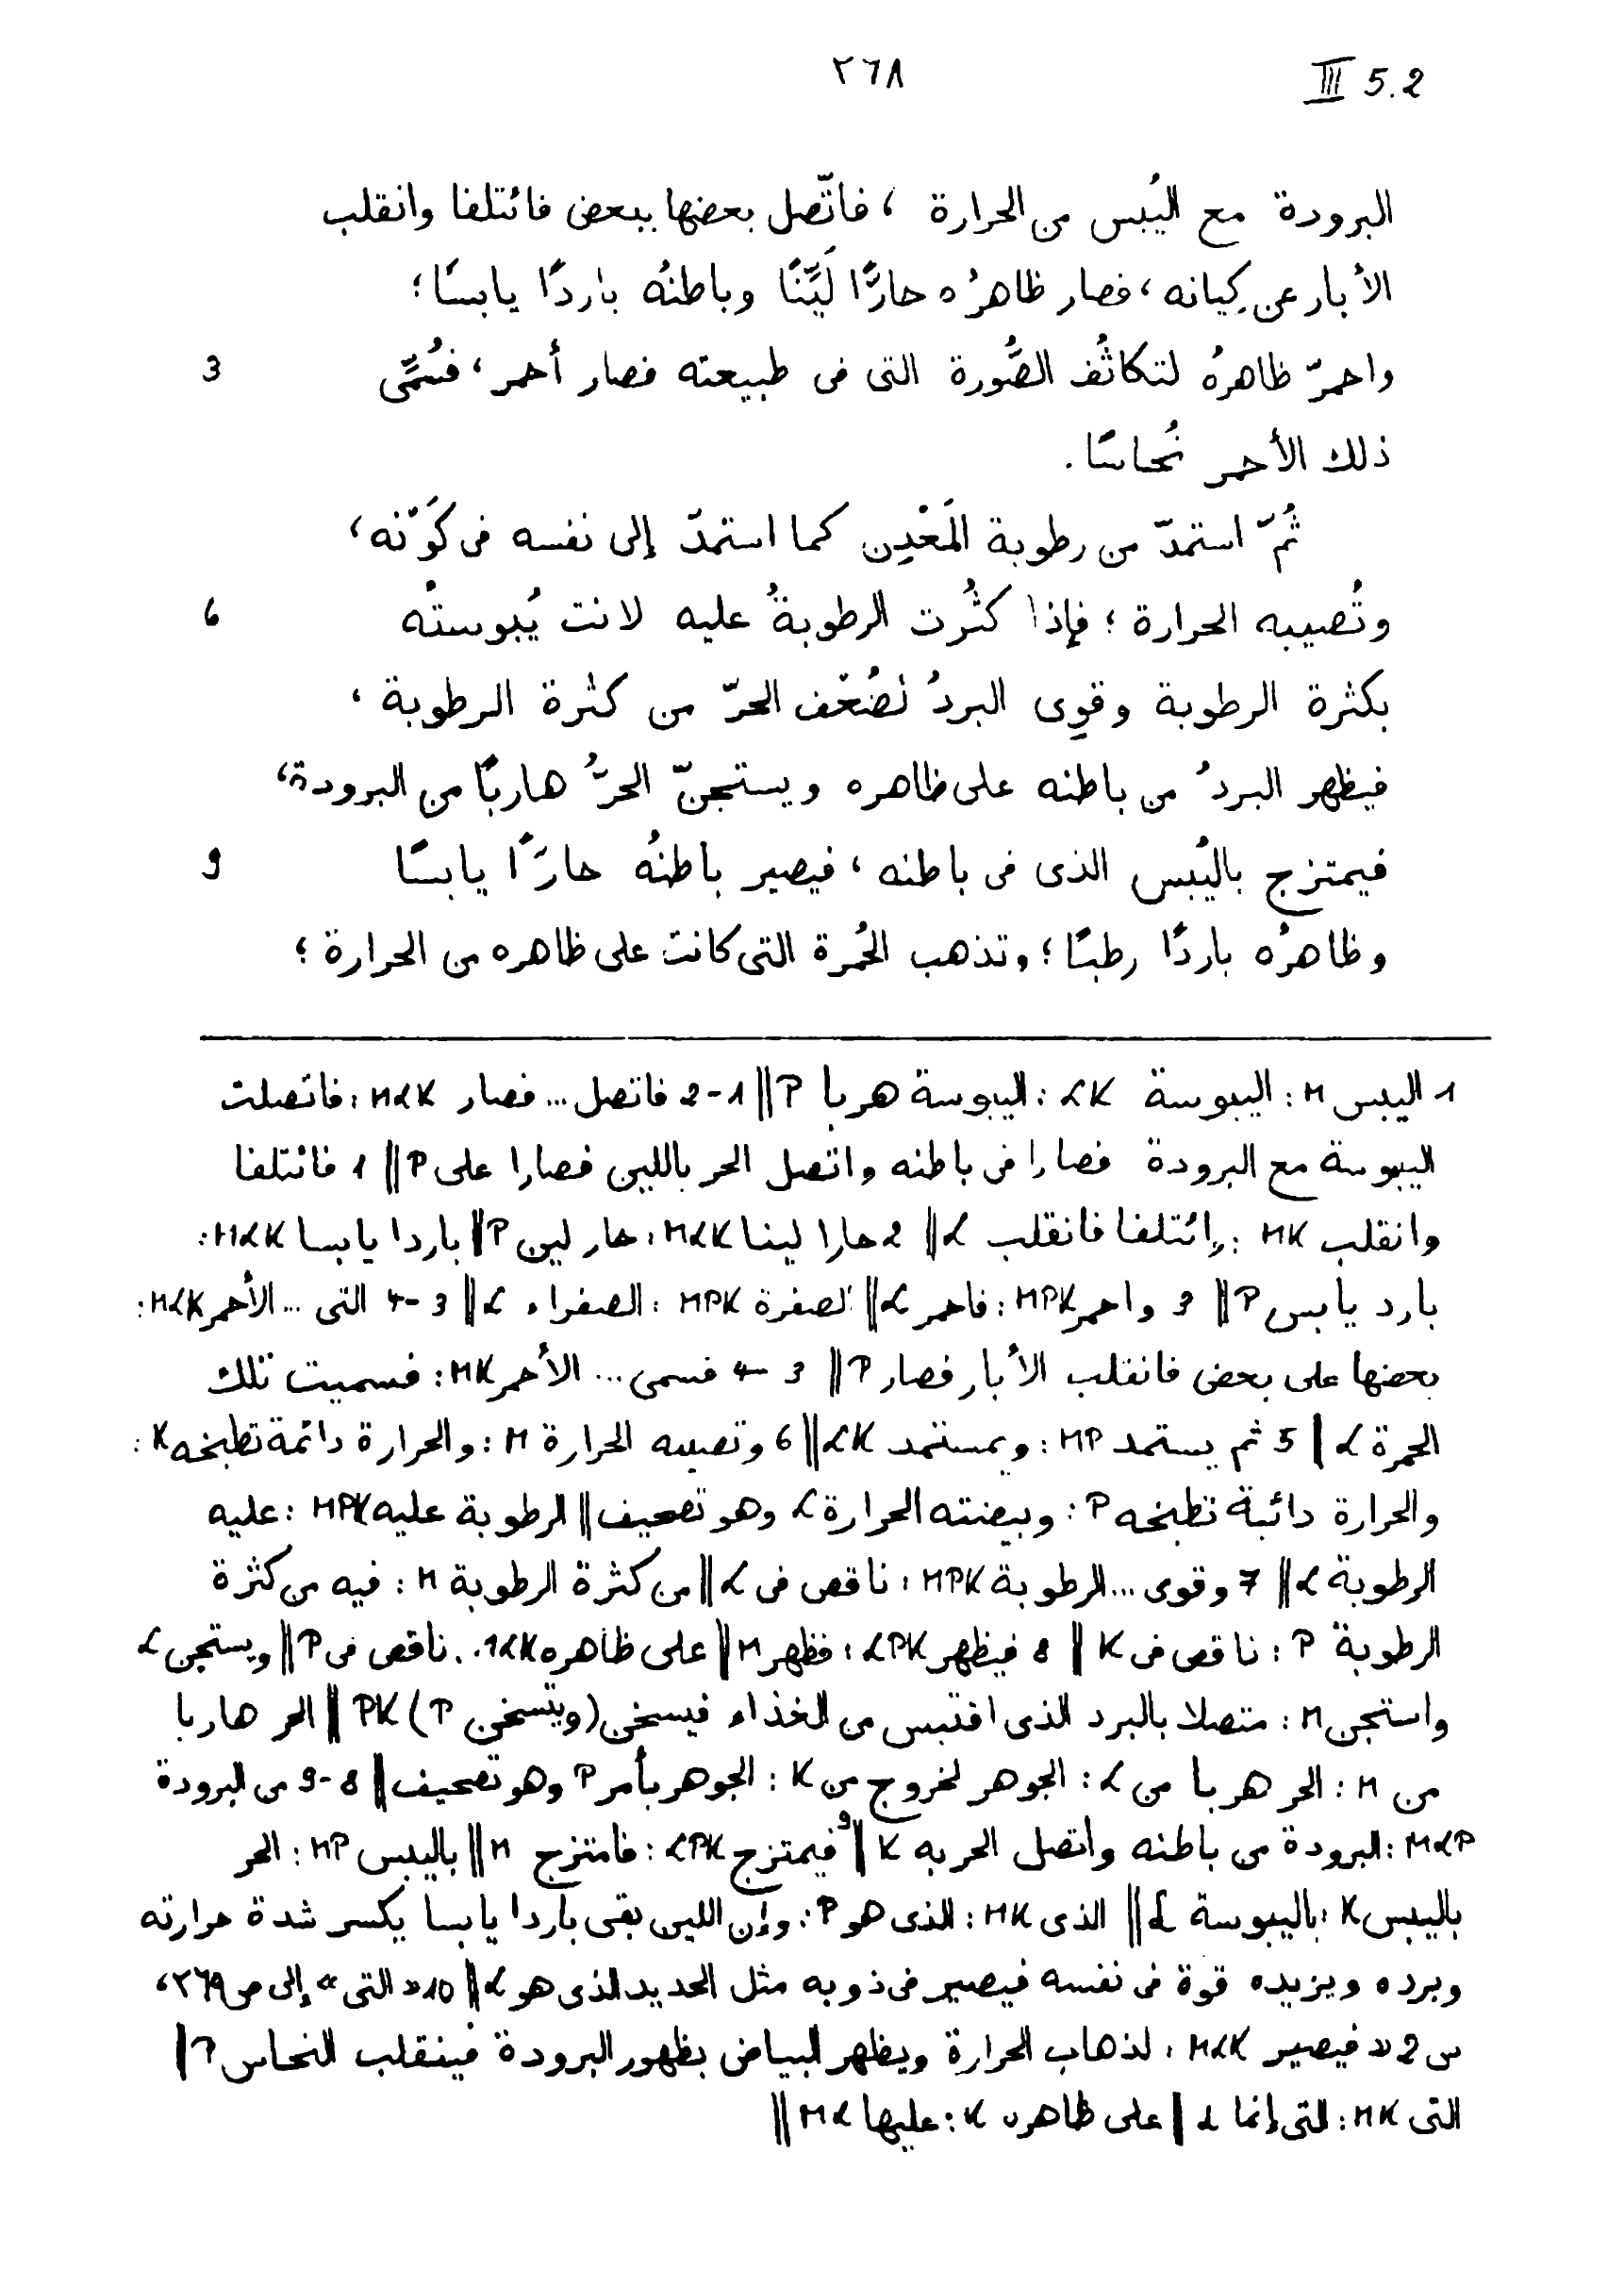 III 5.2
٢٦٨
البرودة مع اليُبس من الحرارة ، فاتّصل بعضها ببعض فائتلفا وانقلب
الأبار عن كِيانه ، فصار ظاهرُه حارًّا لَيِّنًا وباطنُه باردًا يابسًا ؛
واحمرّ ظاهرُه لتكاثُف الصُّورة التى فى طبيعته فصار أحمر ، فسُمِّى 3
ذلك الأحمر نُحاسًا .
ثُمّ استمدّ من رطوبة المَعْدِن كما استمدّ إلى نفسه فى كَوْنه ،
وتُصيبه الحرارة ؛ فإذا كثُرت الرطوبةُ عليه لانت يُبوستُه 6
بكثرة الرطوبة وقوِى البردُ لضُعْف الحرّ من كثرة الرطوبة ،
فيظهر البردُ من باطنه على ظاهره ويستجنّ الحرُّ هاربًا من البرودة ،
فيمتزج باليُبس الذى فى باطنه ، فيصير باطنُه حارًّا يابسًا 9
وظاهرُه باردًا رطبًا ؛ وتذهب الحُمرة التى كانت على ظاهره من الحرارة ؛
1 اليبس M : اليبوسة LK : اليبوسة هربا P || 1-2 فاتصل ... فصار MLK : فاتصلت
اليبوسة مع البرودة فصارا فى باطنه واتصل الحر باللين فصارا على P || 1 فائتلفا
وانقلب MK : إئتلفا فانقلب L || 2 حارا لينا MLK : حار لين P || باردا يابسا MLK :
بارد يابس P || 3 واحمر MPK : فاحمر L || الصفرة MPK : الصفراء L || 3-4 التى ... الأحمر MLK :
بعضها على بعض فانقلب الأبار فصار P || 3-4 فسمى ... الأحمر MK : فسميت تلك
الحمرة L || 5 ثم يستمد MP : ويستمد LK || 6 وتصيبه الحرارة M : والحرارة دائمة تطبخه K :
والحرارة دائبة تطبخه P : وبيضته الحرارة L وهو تصحيف || الرطوبة عليه MPK : عليه
الرطوبة L || 7 وقوى ... الرطوبة MPK : ناقص فى L || من كثرة الرطوبة M : فيه من كثرة
الرطوبة P : ناقص فى K || 8 فيظهر LPK : فظهر M || على ظاهره MLK : ناقص فى P || ويستجن L
واستجن M : متصلا بالبرد الذى اقتبس من الغذاء فيسخن (ويتسخن P) PK || الحر هاربا
من M : الحر هربا من L : الجوهر لخروج من K : الجوهر بأمر P وهو تصحيف || 8-9 من البرودة
MLP : البرودة من باطنه واتصل الحر به K || 9 فيمتزج LPK : فامتزج M || باليبس MP : الحر
باليبس K : باليبوسة L || الذى MK : الذى هو P : وإن اللين بقى باردا يابسا يكسر شدة حرارته
وبرده ويزيده قوة فى نفسه فيصير فى ذوبه مثل الحديد الذى هو L || 10 «التى» إلى ص ٢٦٩ ،
س 2 «فيصير MLK : لذهاب الحرارة ويظهر البياض بظهور البرودة فينقلب النحاس P ||
التى MK : التى إنما L || على ظاهره K : عليها ML ||